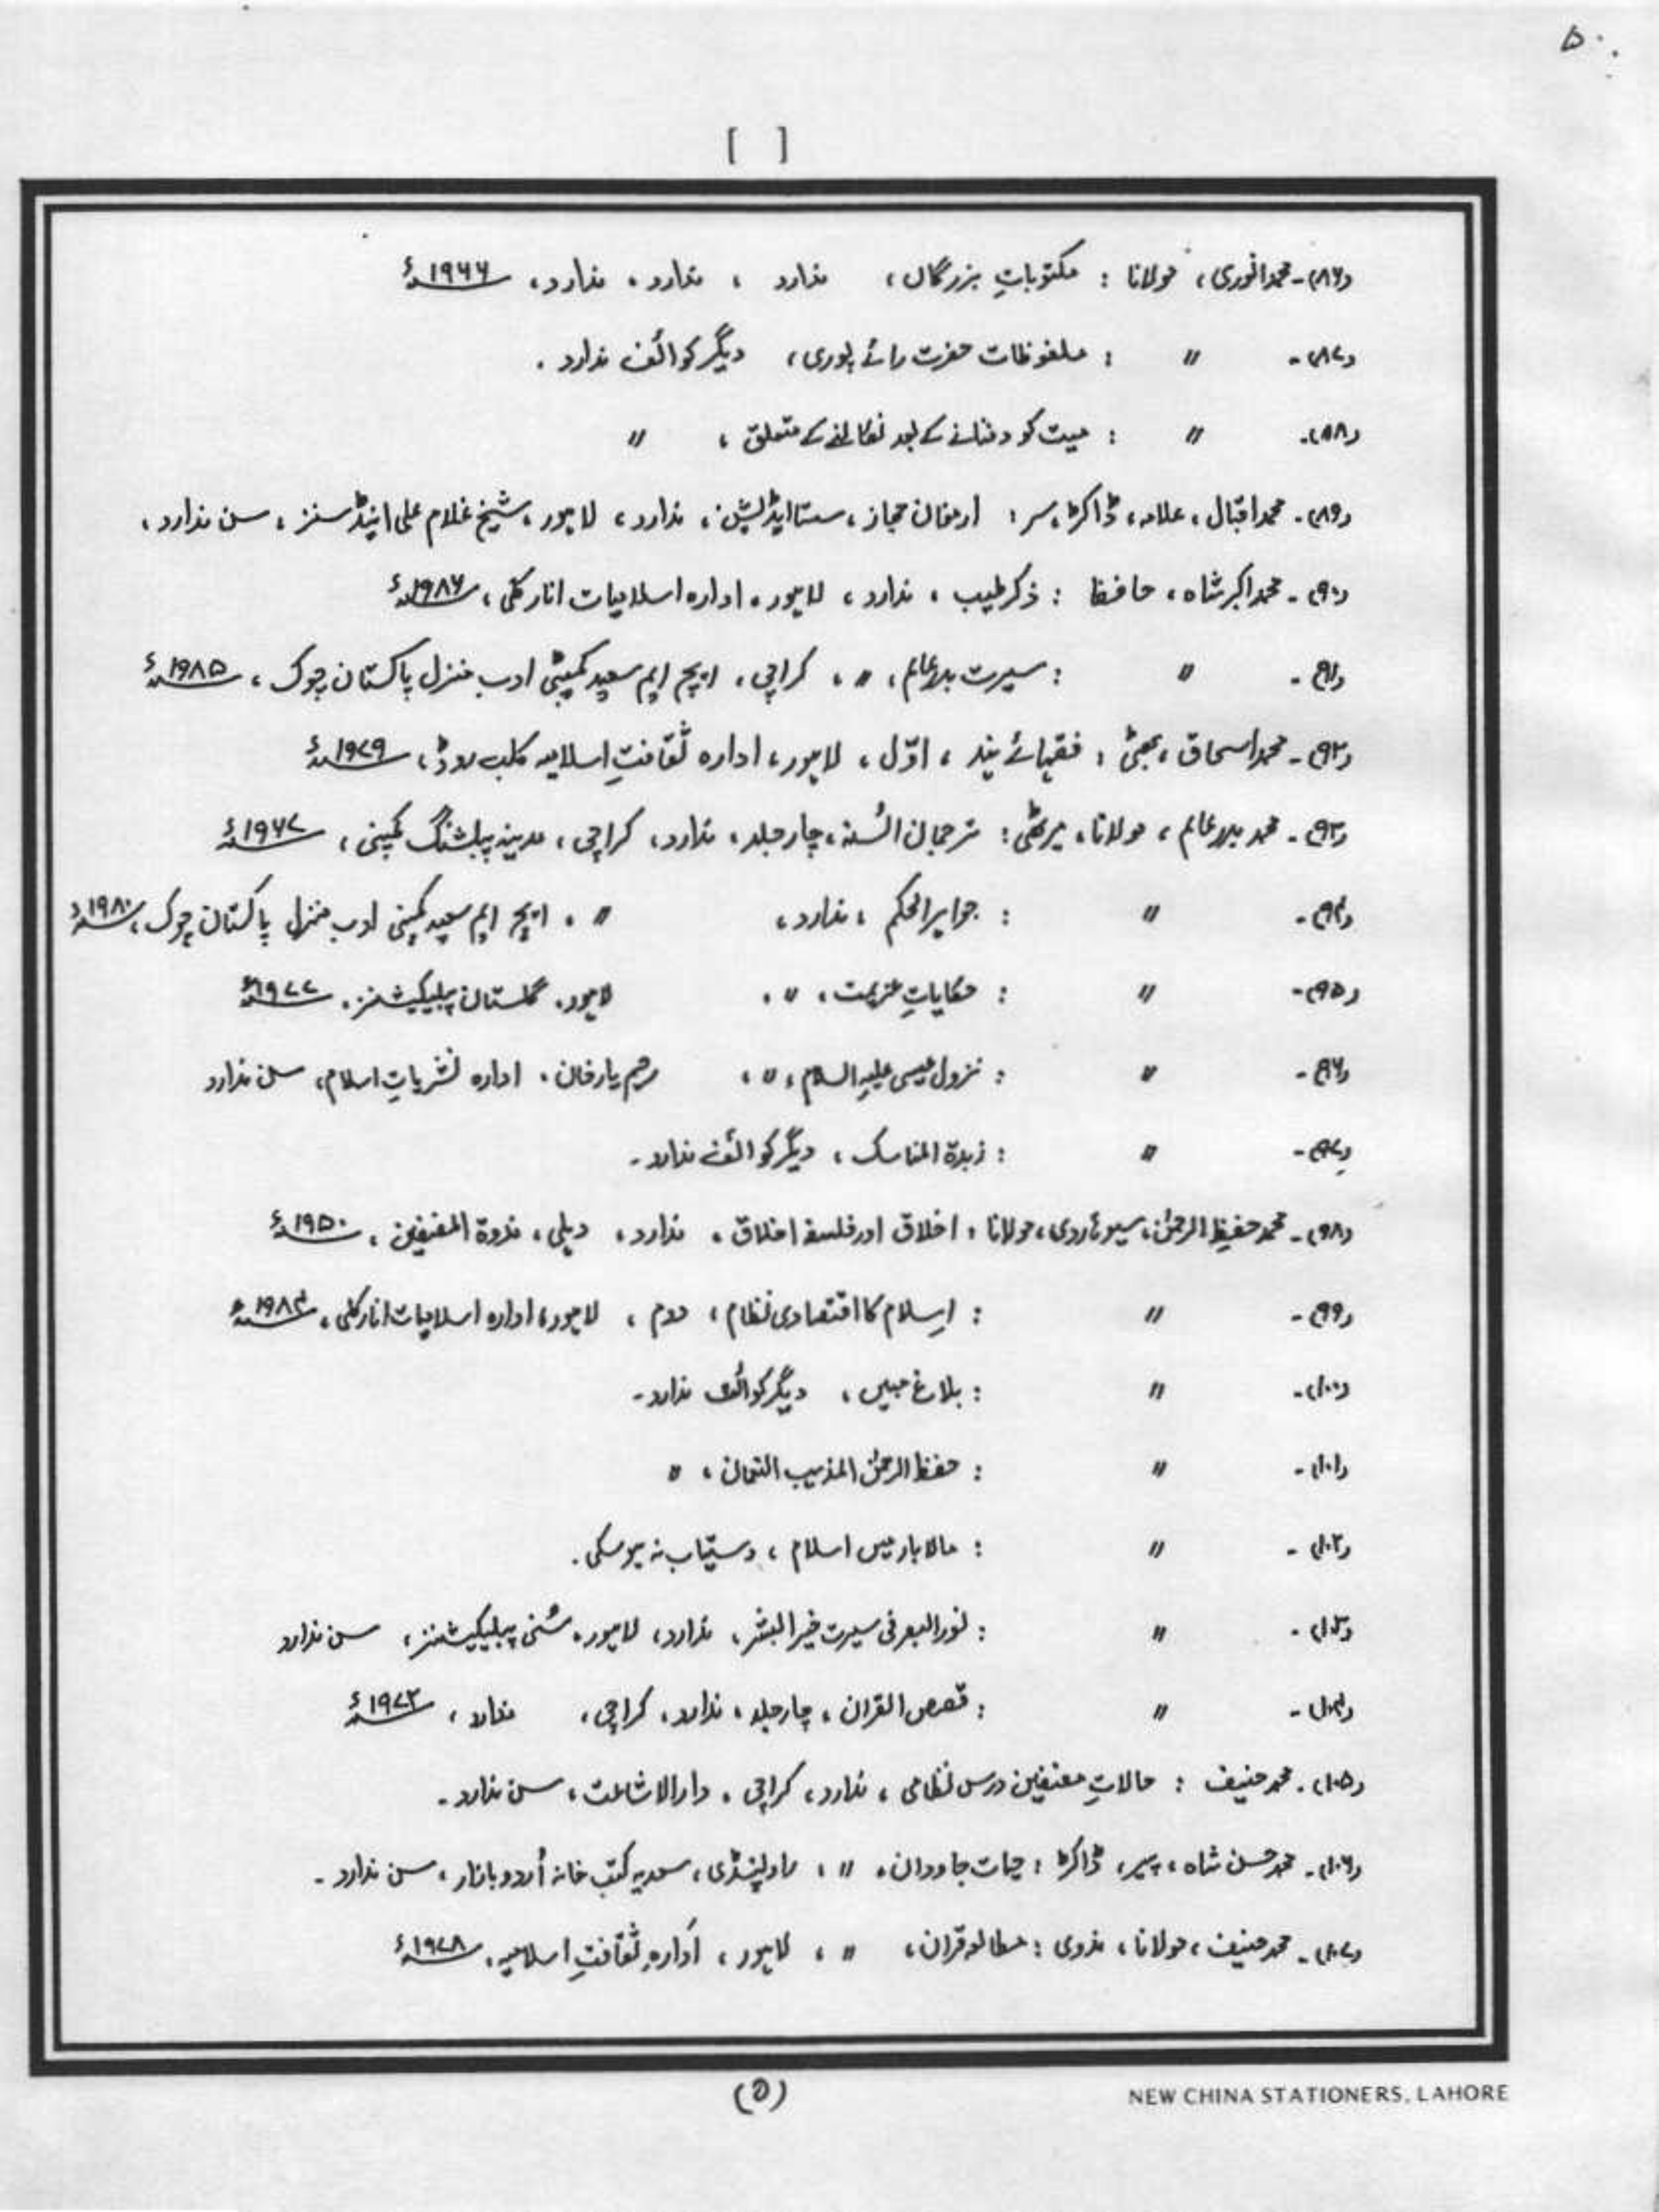 ۵۰
[ ]
(۸۶)۔ محمد انوری، مولانا : مکتوباتِ بزرگاں، ندارد ، ندارد، ندارد، ۱۹۶۶ء
(۸۷)۔ " : ملفوظات حضرت رائے پوری، دیگر کوائف ندارد ۔
(۸۸)۔ " : میت کو دفنانے کے بعد نکالنے کے متعلق ، "
(۸۹)۔ محمد اقبال، علامہ، ڈاکٹر، سر : ارمغان حجاز، سستا ایڈیشن، ندارد، لاہور، شیخ غلام علی اینڈ سنز، سن ندارد،
(۹۰)۔ محمد اکبر شاہ، حافظ : ذکر طیب ، ندارد، لاہور، ادارہ اسلامیات انارکلی، ۱۹۸۶ء
(۹۱)۔ " : سیرت بدر عالم، "، کراچی، ایچ ایم سعید کمپنی ادب منزل پاکستان چوک، ۱۹۸۵ء
(۹۲)۔ محمد اسحاق، بھٹی : فقہائے ہند ، اوّل ، لاہور، ادارہ ثقافتِ اسلامیہ کلب روڈ، ۱۹۷۹ء
(۹۳)۔ محمد بدر عالم، مولانا، میرٹھی : ترجمان السُنہ، چار جلد، ندارد، کراچی، مدینہ پبلشنگ کمپنی، ۱۹۶۷ء
(۹۴)۔ " : جواہر الحکم ، ندارد، " ، ایچ ایم سعید کمپنی ادب منزل پاکستان چوک، ۱۹۸۰ء
(۹۵)۔ " : حکایاتِ عزیمت، "، لاہور، گلستان پبلیکیشنز، ۱۹۷۷ء
(۹۶)۔ " : نزول عیسی علیہ السلام، "، رحیم یار خان، ادارہ نشریاتِ اسلام، سن ندارد
(۹۷)۔ " : زبدۃ المناسک ، دیگر کوائف ندارد ۔
(۹۸)۔ محمد حفیظ الرحمٰن، سیوہاروی، مولانا : اخلاق اور فلسفہ اخلاق، ندارد، دہلی، ندوۃ المصنفین ، ۱۹۵۰ء
(۹۹)۔ " : اسلام کا اقتصادی نظام، دوم ، لاہور، ادارہ اسلامیات انارکلی، ۱۹۸۴ء
(۱۰۰)۔ " : بلاغ مبیں ، دیگر کوائف ندارد۔
(۱۰۱)۔ " : حفظ الرحمٰن المذہب النعمان ، "
(۱۰۲)۔ " : مالابار میں اسلام ، دستیاب نہ ہو سکی ۔
(۱۰۳)۔ " : نور البصر فی سیرت خیر البشر، ندارد، لاہور، سُنی پبلیکیشنز، سن ندارد
(۱۰۴)۔ " : قصص القران ، چار جلد، ندارد، کراچی، ندارد ، ۱۹۷۲ء
(۱۰۵)۔ محمد حنیف : حالاتِ مصنفین درس نظامی، ندارد، کراچی ، دارالاشاعت، سن ندارد۔
(۱۰۶)۔ محمد حسن شاہ، پیر، ڈاکٹر : حیات جاودان، " ، راولپنڈی، سعدیہ کتب خانہ اُردو بازار ، سن ندارد ۔
(۱۰۷)۔ محمد حنیف، مولانا، ندوی : مطالعہ قران، " ، لاہور ، ادارہ ثقافتِ اسلامیہ، ۱۹۷۸ء
(۵)
NEW CHINA STATIONERS, LAHORE